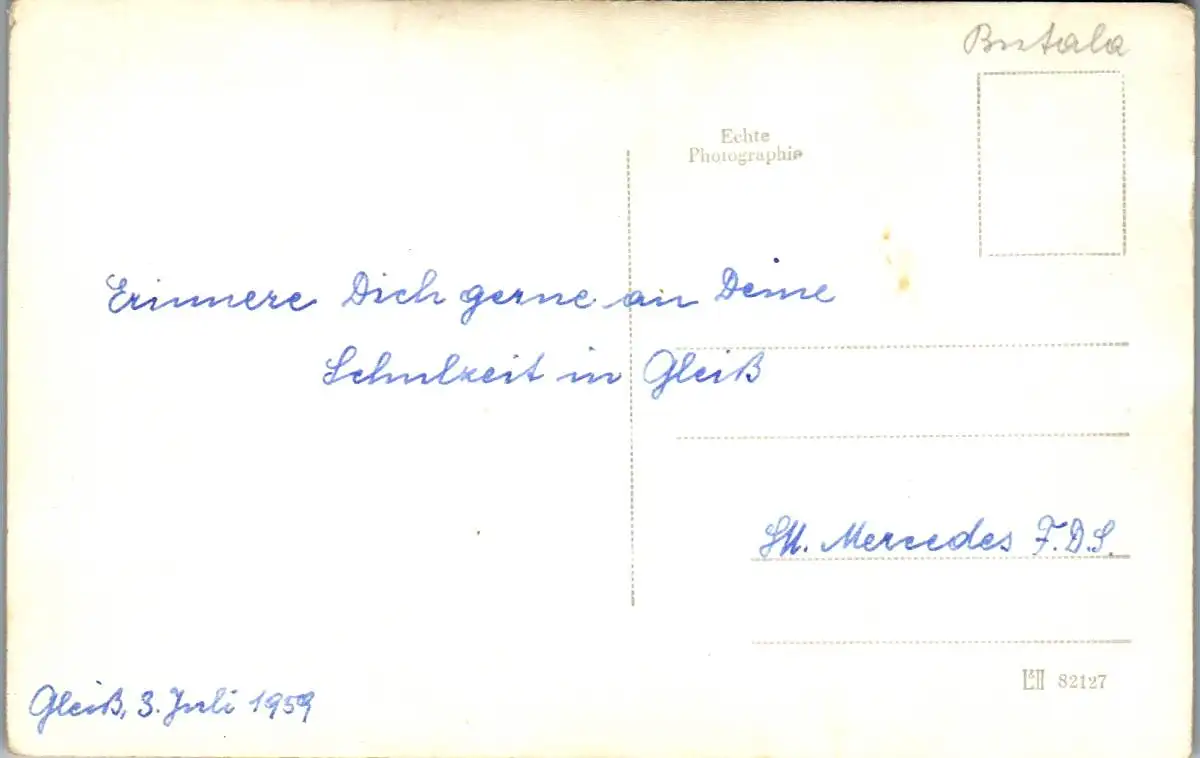 Butala
Echte
Photographie
Erinnere Dich gerne an Deine
Schulzeit in Gleiß
SM. Mercedes F.D.S.
Gleiß, 3. Juli 1959
82127